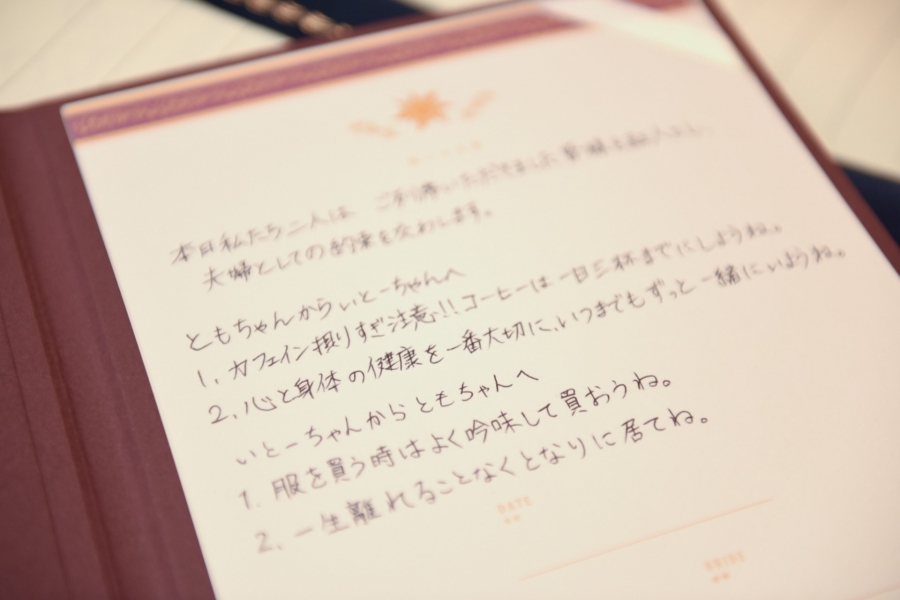 本日私たち二人は ご列席いただきました皆様
夫婦としての約束を交わします。
ともちゃんからいとーちゃんへ
1. カフェイン摂りすぎ注意!! コーヒーは一日三杯までにしようね。
2. 心と身体の健康を一番大切に、いつまでもずっと一緒にいようね。
いとーちゃんからともちゃんへ
1. 服を買う時はよく吟味して買おうね。
2. 一生離れることなくとなりに居てね。
DATE
BRIDE